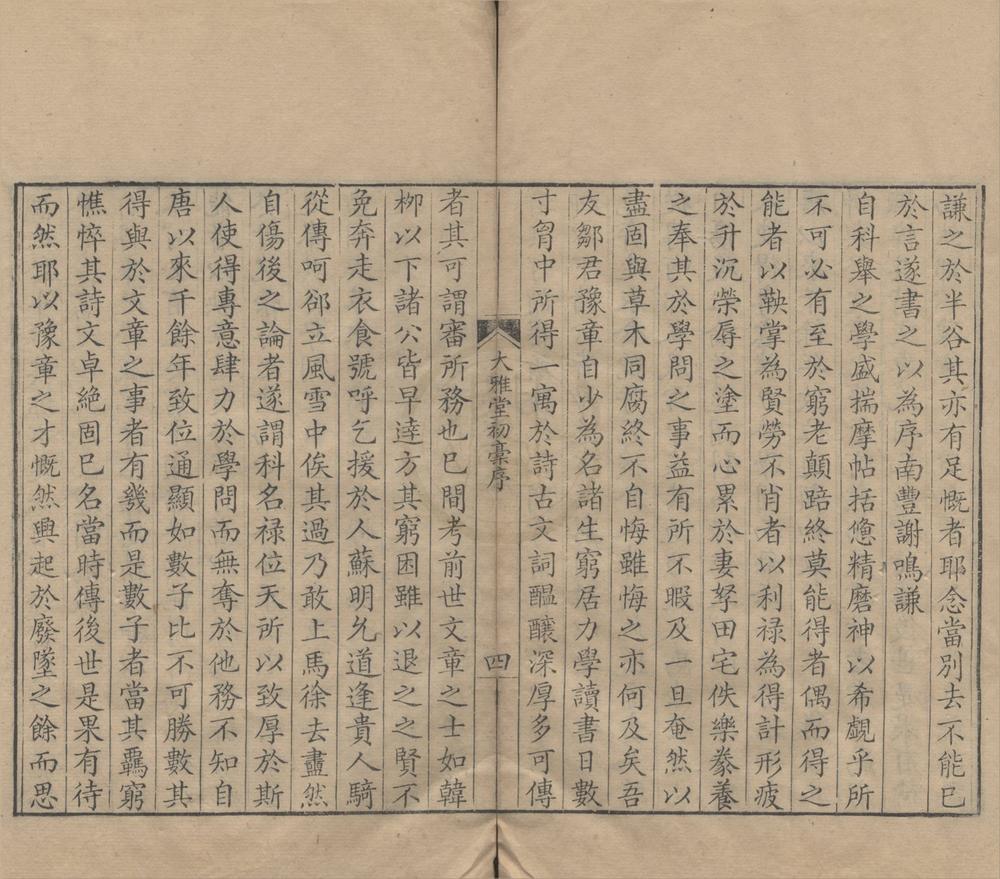 謙之於半谷其亦有足慨者耶念當別去不能已
於言遂書之以為序南豐謝鳴謙
自科舉之學盛揣摩帖括憊精磨神以希覬乎所
不可必有至於窮老顛踣終莫能得者偶而得之
能者以鞅掌為賢勞不肖者以利祿為得計形疲
於升沉榮辱之塗而心累於妻孥田宅佚樂豢養
之奉其於學問之事益有所不暇及一旦奄然以
盡固與草木同腐終不自悔雖悔之亦何及矣吾
友鄒君豫章自少為名諸生窮居力學讀書日數
寸胷中所得一寓於詩古文詞醞釀深厚多可傳
大雅堂初稾序
四
者其可謂審所務也已間考前世文章之士如韓
柳以下諸公皆早達方其窮困雖以退之之賢不
免奔走衣食號呼乞援於人蘇明允道逢貴人騎
從傳呵郤立風雪中俟其過乃敢上馬徐去盡然
自傷後之論者遂謂科名祿位天所以致厚於斯
人使得專意肆力於學問而無奪於他務不知自
唐以來千餘年致位通顯如數子比不可勝數其
得與於文章之事者有幾而是數子者當其羈窮
憔悴其詩文卓絶固已名當時傳後世是果有待
而然耶以豫章之才慨然興起於廢墜之餘而思